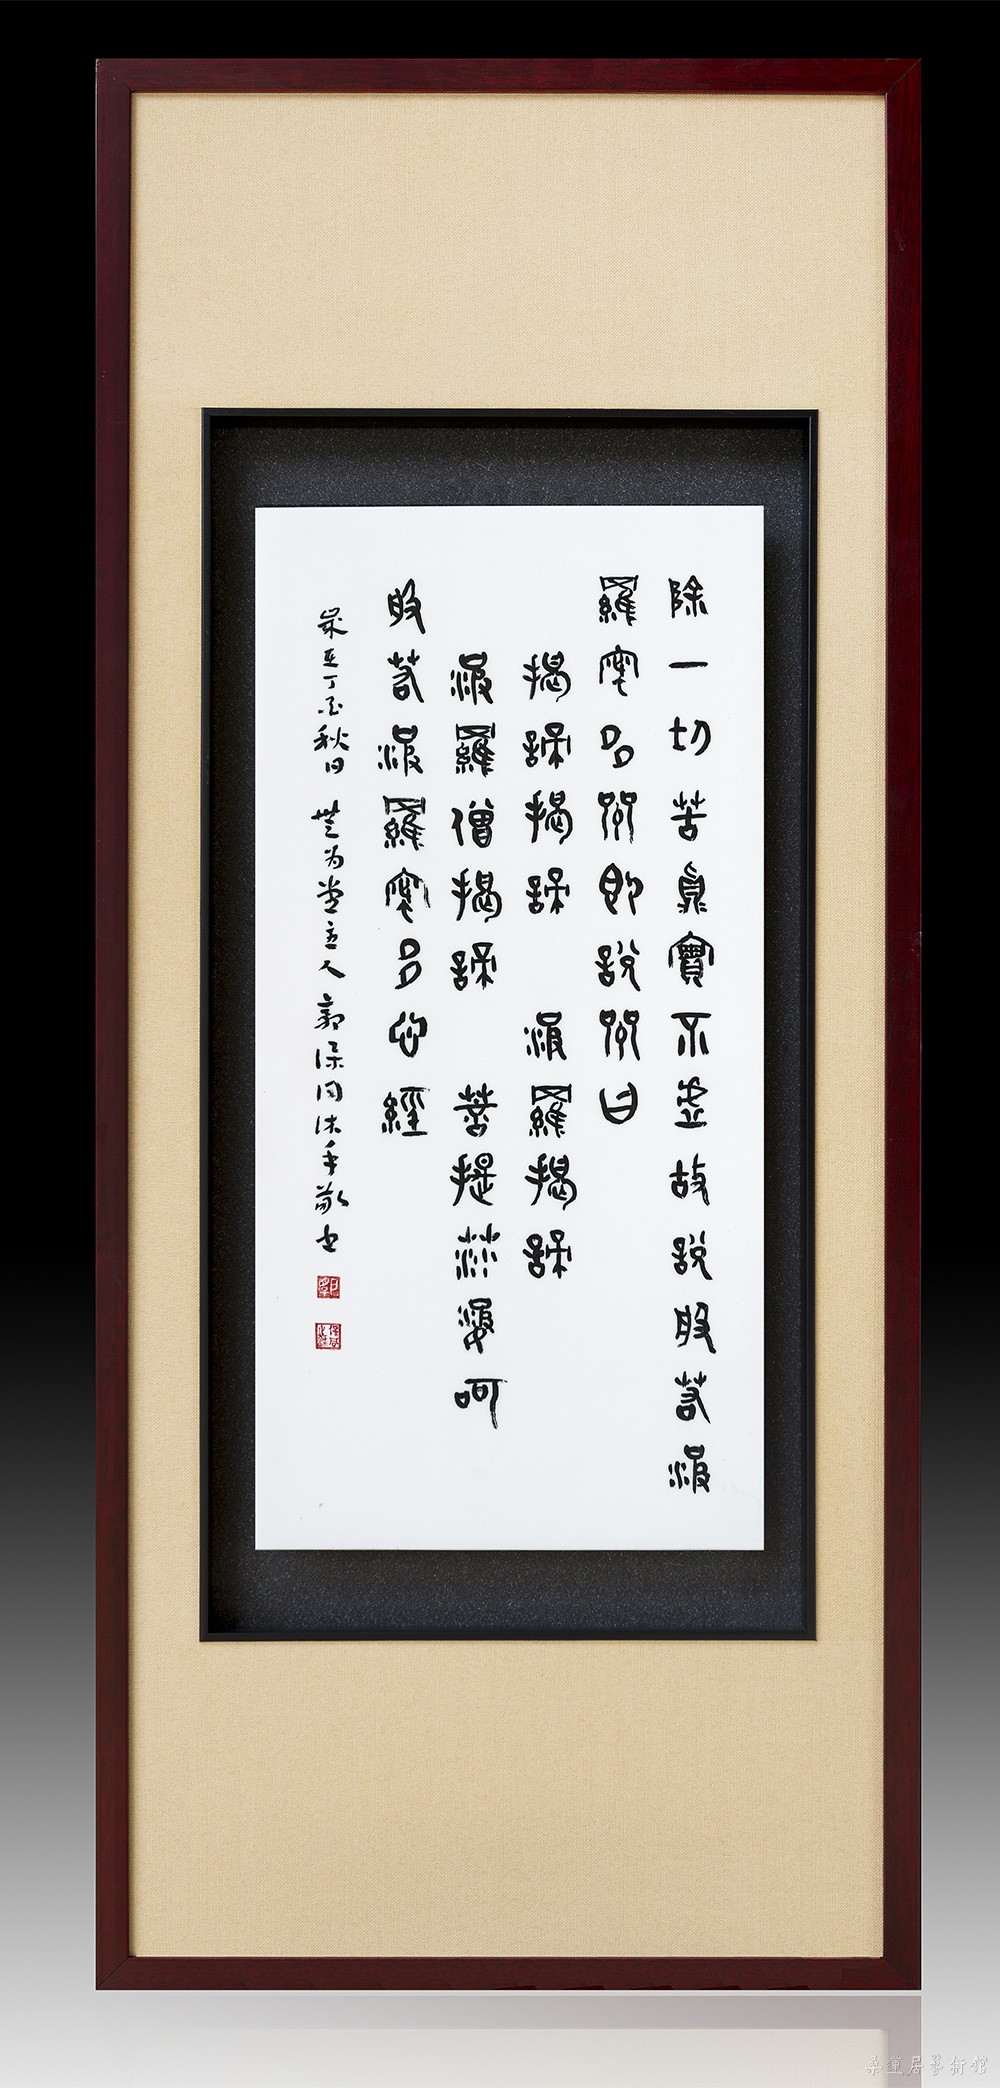 除一切苦真實不虛故說般若波
羅蜜多咒即說咒曰
揭諦揭諦 波羅揭諦
波羅僧揭諦 菩提莎婆呵
般若波羅蜜多心經
歲在丁酉秋日 無为堂主人郭保同沐手敬书
桑蓮居藝術館